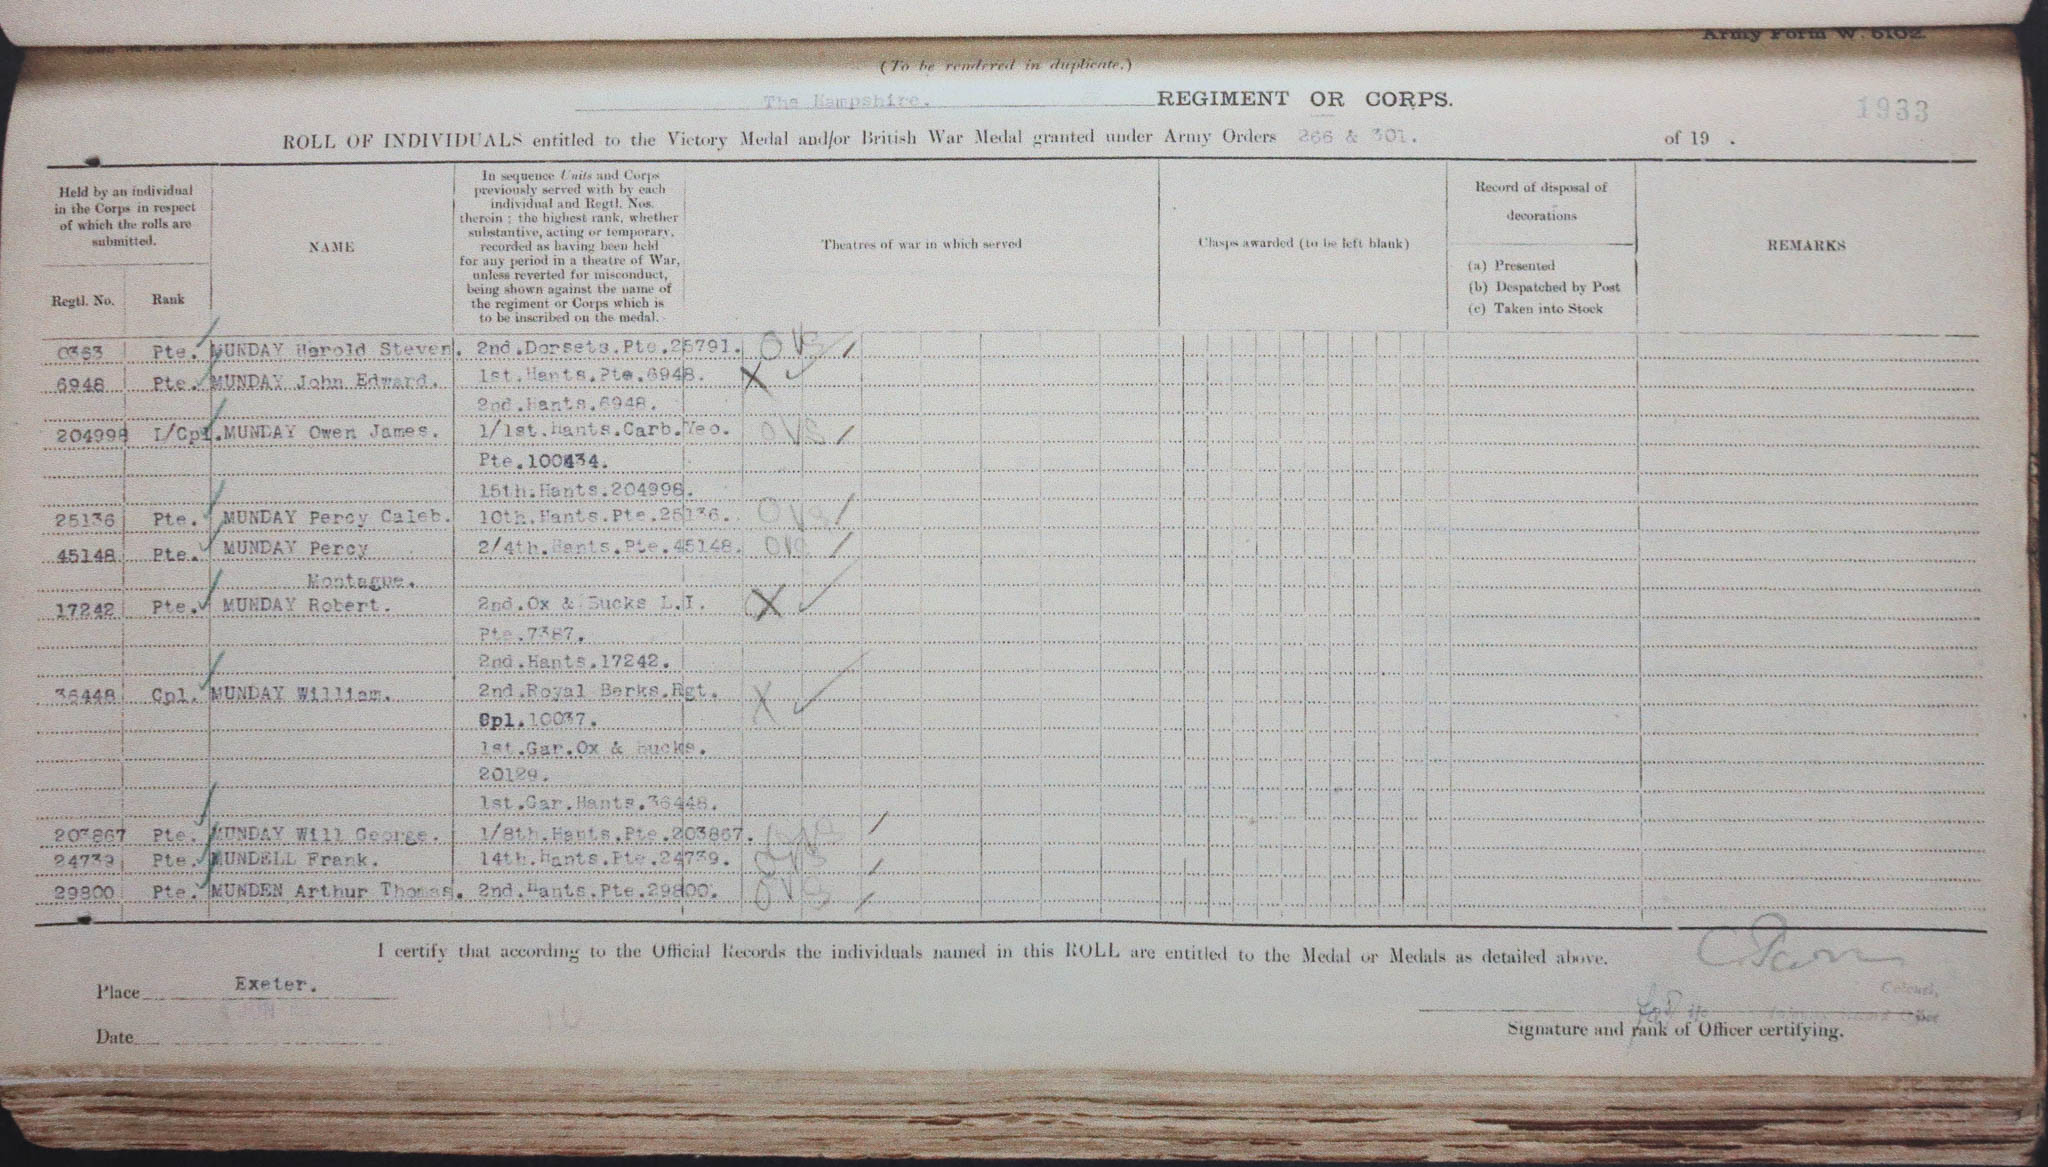 Army Form W. 5102.
(To be rendered in duplicate.)
The Hampshire. REGIMENT OR CORPS.
1933
ROLL OF INDIVIDUALS entitled to the Victory Medal and/or British War Medal granted under Army Orders 266 & 301. of 19 .
Held by an individual
in the Corps in respect
of which the rolls are
submitted.
Regtl. No. Rank
NAME
In sequence Units and Corps
previously served with by each
individual and Regtl. Nos.
therein ; the highest rank, whether
substantive, acting or temporary,
recorded as having been held
for any period in a theatre of War,
unless reverted for misconduct,
being shown against the name of
the regiment or Corps which is
to be inscribed on the medal.
Theatres of war in which served
Clasps awarded (to be left blank)
Record of disposal of
decorations
(a) Presented
(b) Despatched by Post
(c) Taken into Stock
REMARKS
0353 Pte. MUNDAY Harold Steven. 2nd.Dorsets.Pte.25791. OVS
6948 Pte. MUNDAY John Edward. 1st.Hants.Pte.6948. X
2nd.Hants.6948.
204998 L/Cpl. MUNDAY Owen James. 1/1st.Hants.Carb.Yeo. OVS
Pte.100434.
15th.Hants.204998.
25136 Pte. MUNDAY Percy Caleb. 10th.Hants.Pte.25136. OVS
45148 Pte. MUNDAY Percy 2/4th.Hants.Pte.45148. OVS
Montague.
17242 Pte. MUNDAY Robert. 2nd.Ox & Bucks L.I. X
Pte.7387.
2nd.Hants.17242.
36448 Cpl. MUNDAY William. 2nd.Royal Berks.Rgt. X
Cpl.10037.
1st.Gar.Ox & Bucks.
20129.
1st.Gar.Hants.36448.
203867 Pte. MUNDAY Will George. 1/8th.Hants.Pte.203867. OVS
24739 Pte. MUNDELL Frank. 14th.Hants.Pte.24739. OVS
29800 Pte. MUNDEN Arthur Thomas. 2nd.Hants.Pte.29800. OVS
I certify that according to the Official Records the individuals named in this ROLL are entitled to the Medal or Medals as detailed above.
Place Exeter.
JUN
Colonel,
Date
Signature and rank of Officer certifying.